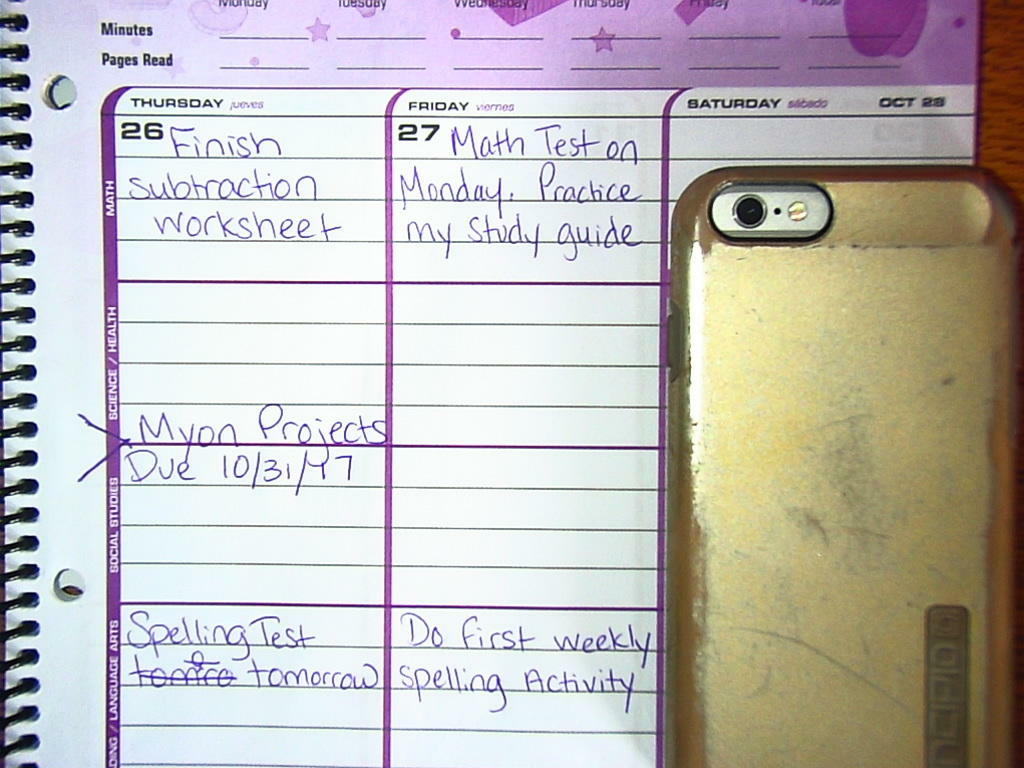 Monday Tuesday Wednesday Thursday Friday
Minutes
Pages Read
THURSDAY jueves
26 Finish
subtraction
worksheet
Myon Projects
Due 10/31/17
Spelling Test
tomorrow
FRIDAY viernes
27 Math Test on
Monday. Practice
my study guide
Do first weekly
spelling Activity
SATURDAY sábado OCT 28
MATH
SCIENCE / HEALTH
SOCIAL STUDIES
LANGUAGE ARTS
INCIPIO